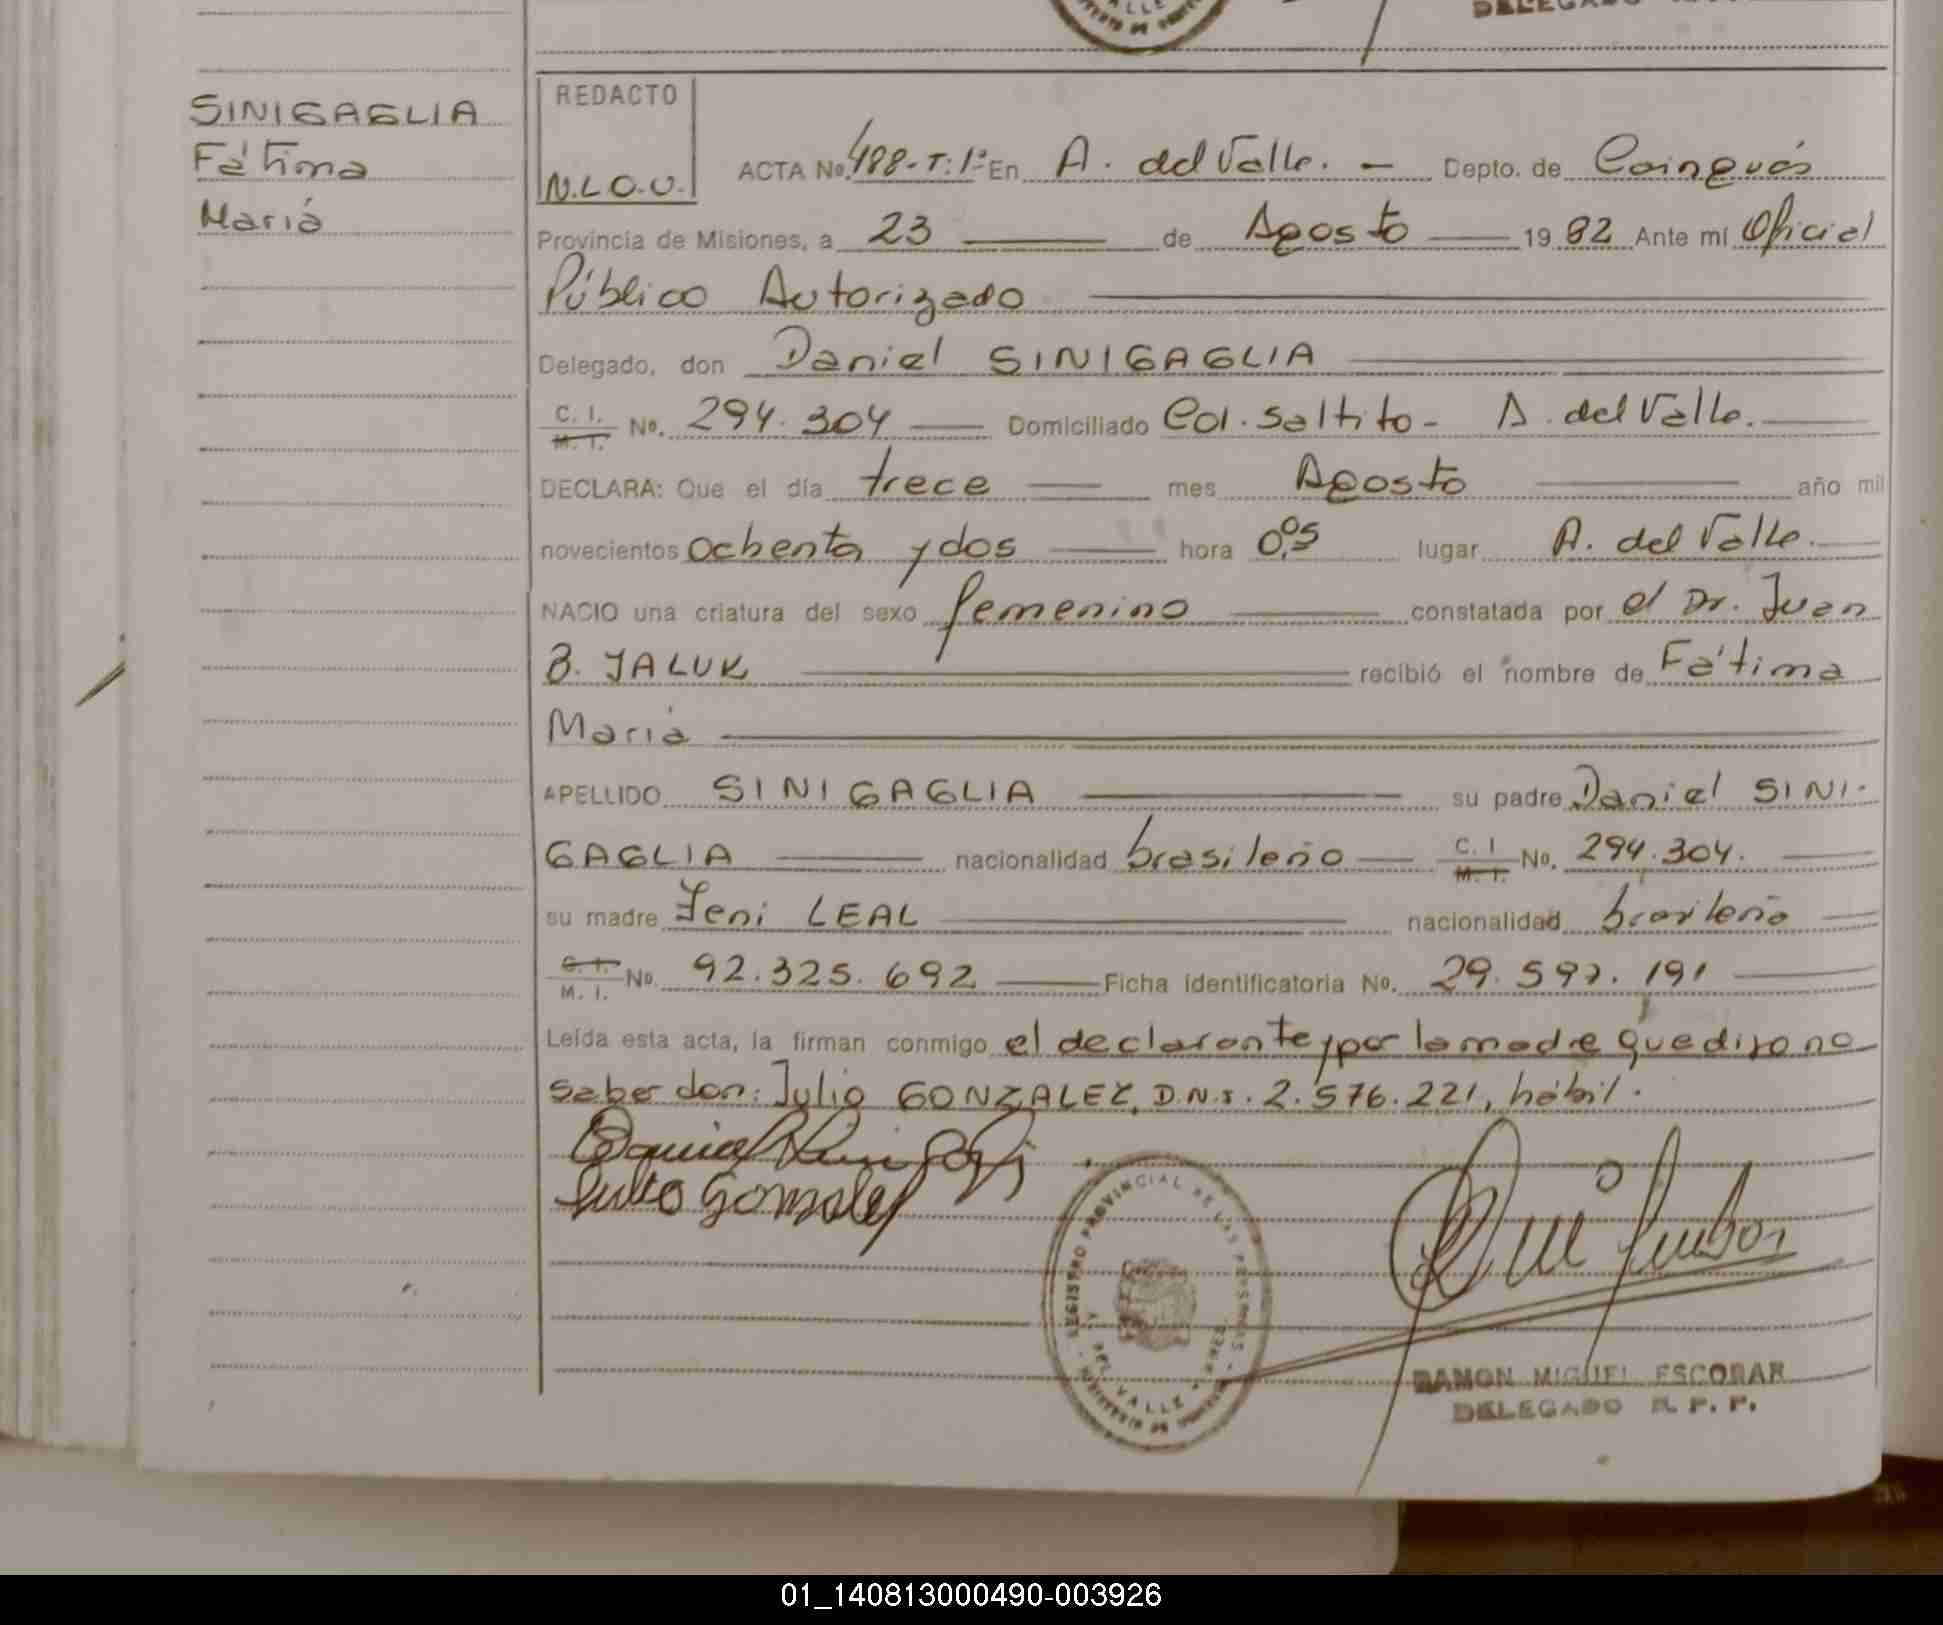 DELEGADO
SINIGAGLIA
Fátima
María
REDACTO
N.L.O.U.
ACTA No. 488-T:1º En A. del Valle. — Depto. de Cainguás
Provincia de Misiones, a 23 de Agosto 19 82 Ante mí Oficial
Público Autorizado
Delegado, don Daniel SINIGAGLIA
C. I. M. I. No. 294.304 Domiciliado Col. Saltito - A. del Valle.
DECLARA: Que el día trece mes Agosto año mil
novecientos ochenta y dos hora 0,05 lugar A. del Valle.
NACIO una criatura del sexo femenino constatada por el Dr. Juan
B. JALUK recibió el nombre de Fátima
María
APELLIDO SINIGAGLIA su padre Daniel SINI-
GAGLIA nacionalidad brasileño C. I M. I. No. 294.304.
su madre Jeni LEAL nacionalidad brasileña
C. I. M. I. No. 92.325.692 Ficha identificatoria No. 29.597.191
Leída esta acta, la firman conmigo el declarante y por la madre que dijo no
saber don: Julio GONZALEZ, D.N.I. 2.576.221, hábil.
Julio Gonzalez
REGISTRO PROVINCIAL DE LAS PERSONAS
DEL VALLE
RAMON MIGUEL ESCOBAR
DELEGADO R. P. P.
01_140813000490-003926